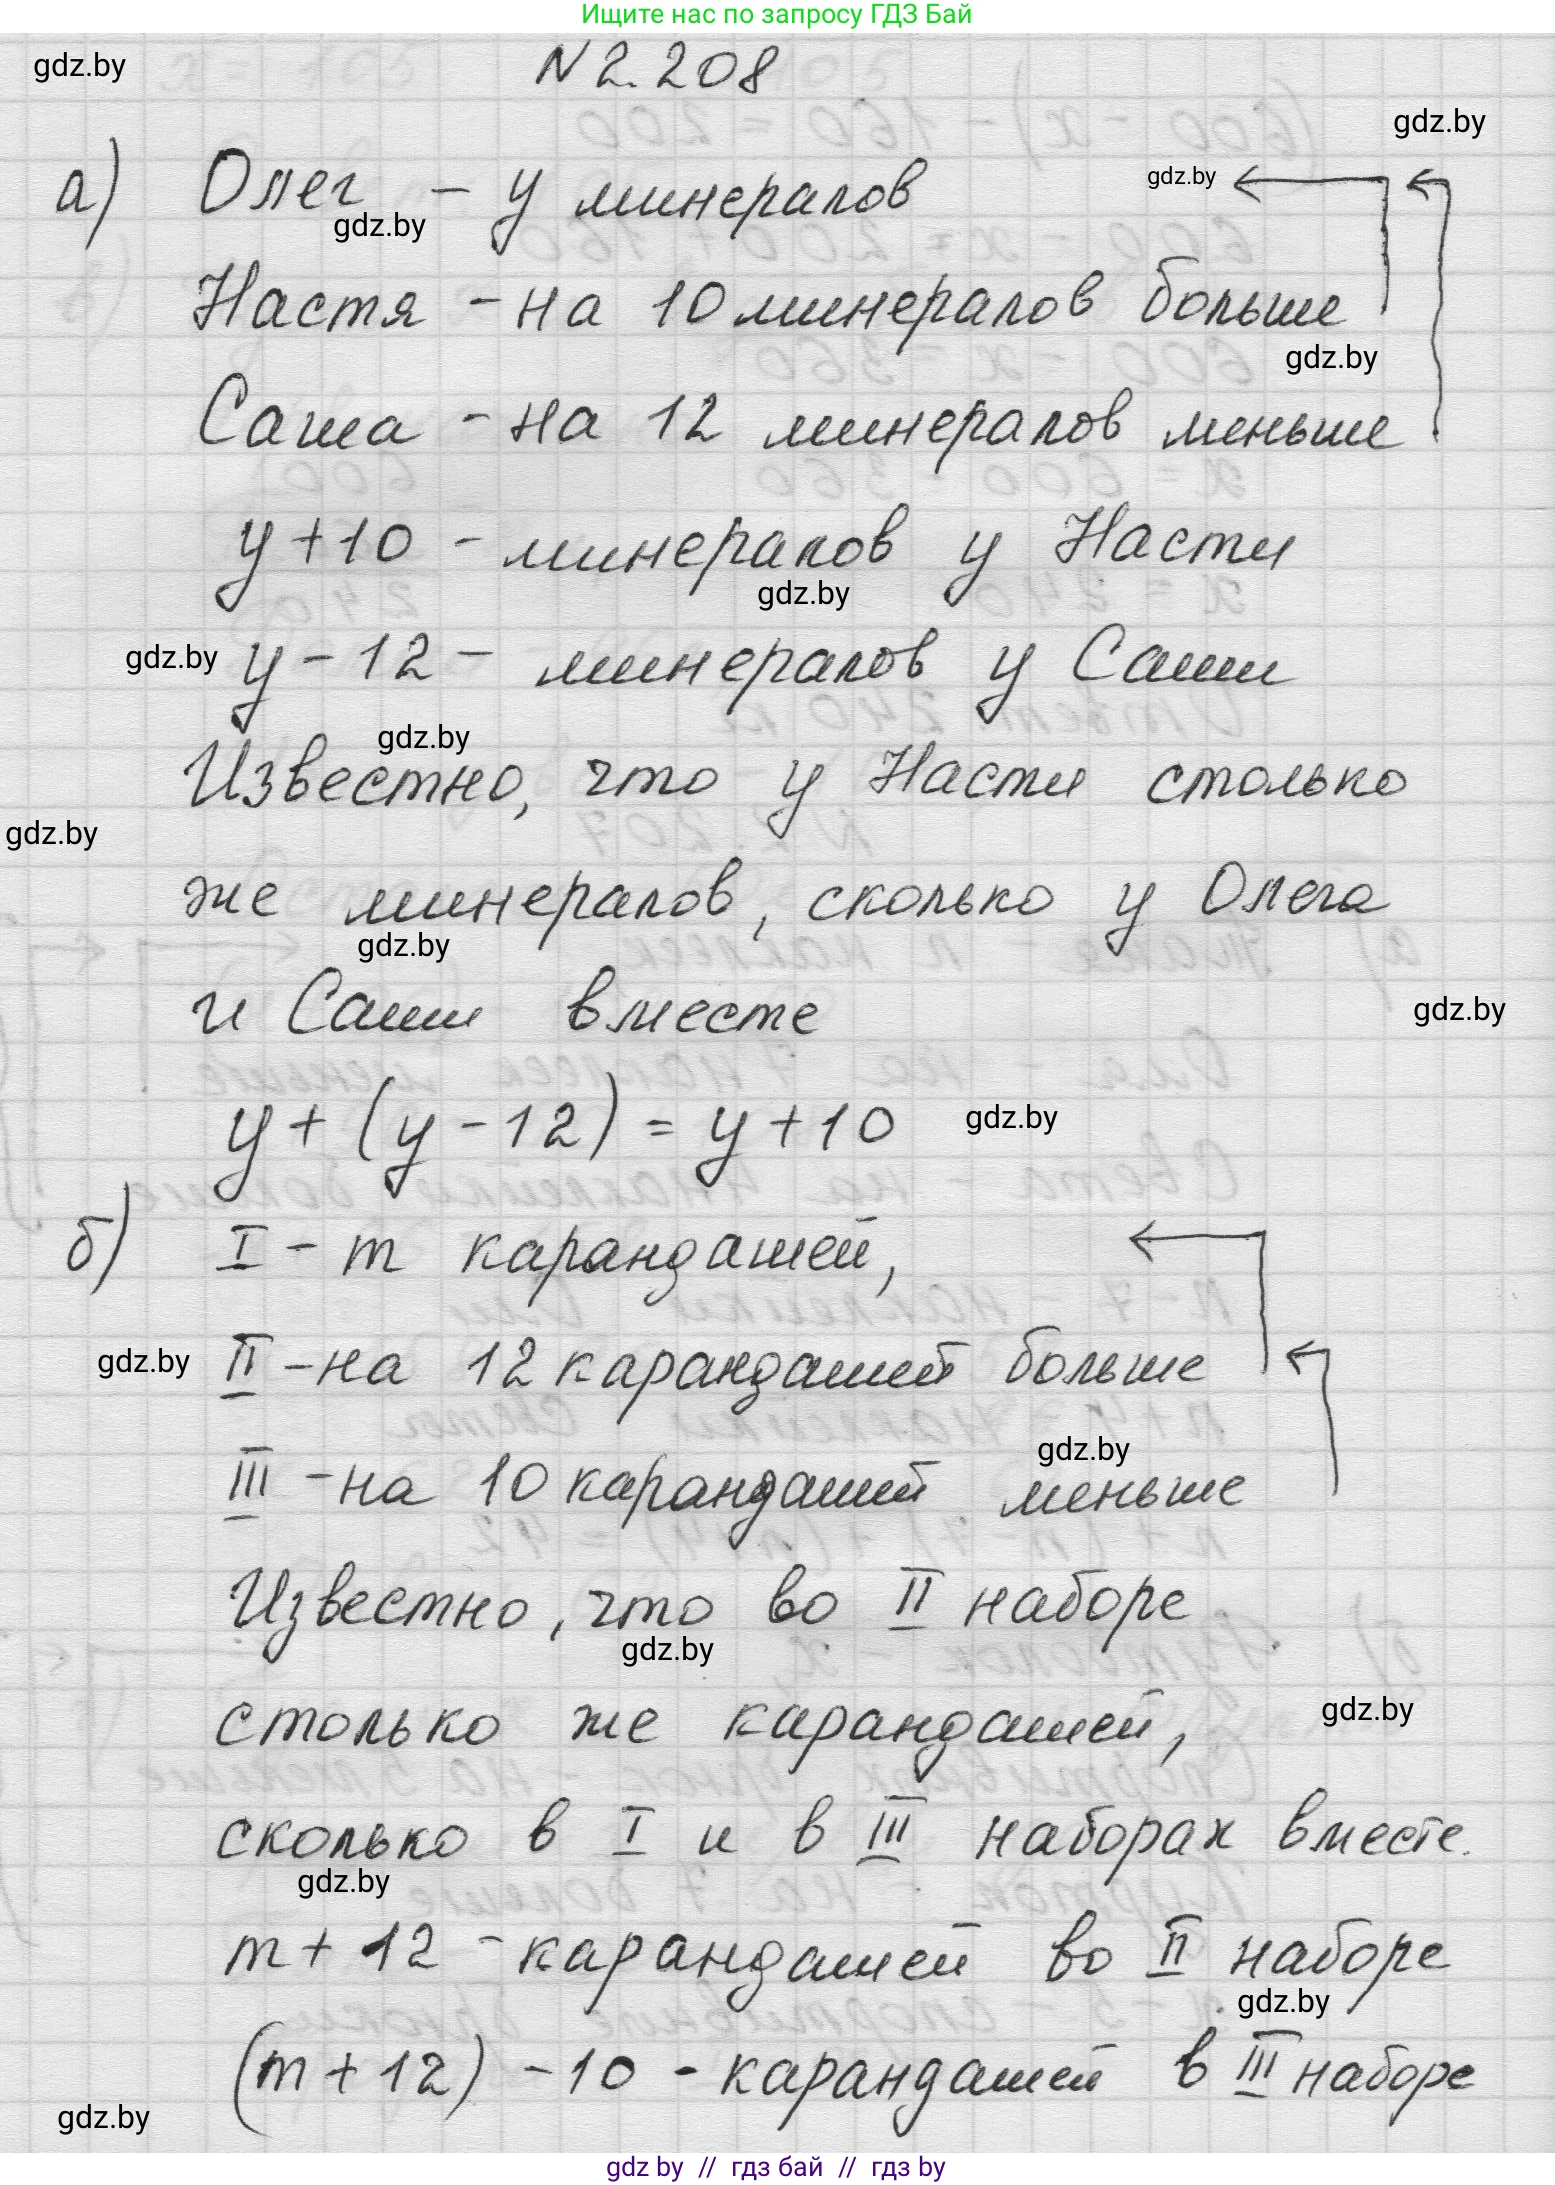 Ищите нас по запросу ГДЗ Бай
gdz.by
N 2.208
gdz.by
а) Олег - у минералов
gdz.by
gdz.by
Настя - на 10 минералов больше
gdz.by
Саша - на 12 минералов меньше
у + 10 - минералов у Насти
gdz.by
gdz.by
у - 12 - минералов у Саши
gdz.by
Известно, что у Насти столько
gdz.by
же минералов, сколько у Олега
gdz.by
и Саши вместе
gdz.by
у + (у - 12) = у + 10
gdz.by
б) I - m карандашей,
gdz.by
II - на 12 карандашей больше
gdz.by
III - на 10 карандашей меньше
Известно, что во II наборе
gdz.by
столько же карандашей,
gdz.by
сколько в I и в III наборах вместе.
gdz.by
m + 12 - карандашей во II наборе
gdz.by
(m + 12) - 10 - карандашей в III наборе
gdz.by
gdz by // гдз бай // гдз by